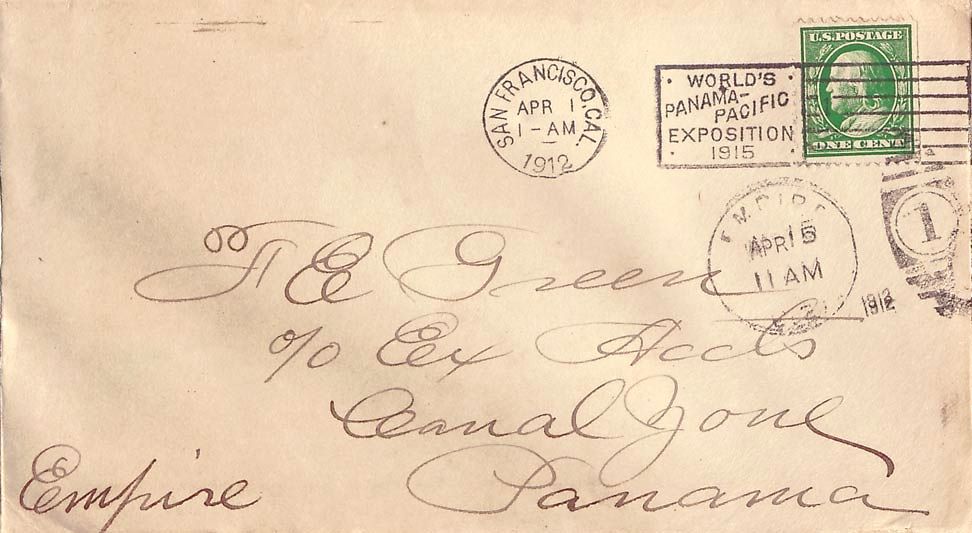 U.S.POSTAGE
ONE CENT
SAN FRANCISCO, CAL.
APR 1
1-AM
1912
WORLD'S
PANAMA-
PACIFIC
EXPOSITION
1915
EMPIRE
APR 15
11 AM
1912
1
F E Green
c/o Ex
Canal Zone
Panama
Empire